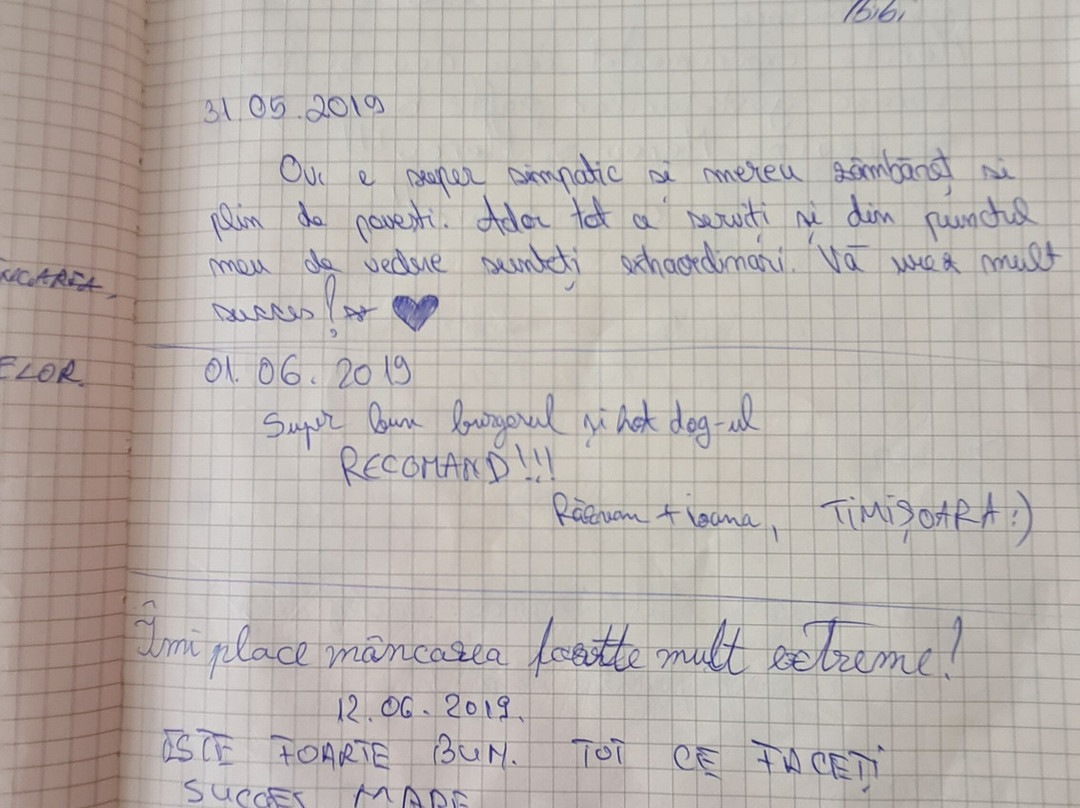 Bibi
31.05.2019
Ovi e super simpatic si mereu zâmbăreț si
plin de povesti. Ador tot ce serviți și din punctul
meu de vedere sunteți extraordinari. Vă urez mult
succes!
ELOR.
01. 06. 2019
Super bun burgerul și hot dog-ul
RECOMAND!!!
Răzvan + ioana, TiMiȘOARA :)
Îmi place mâncarea foarte mult extreme!
12.06. 2019.
ESTE FOARTE BUN. TOT CE FACEȚI
SUCCES MARE